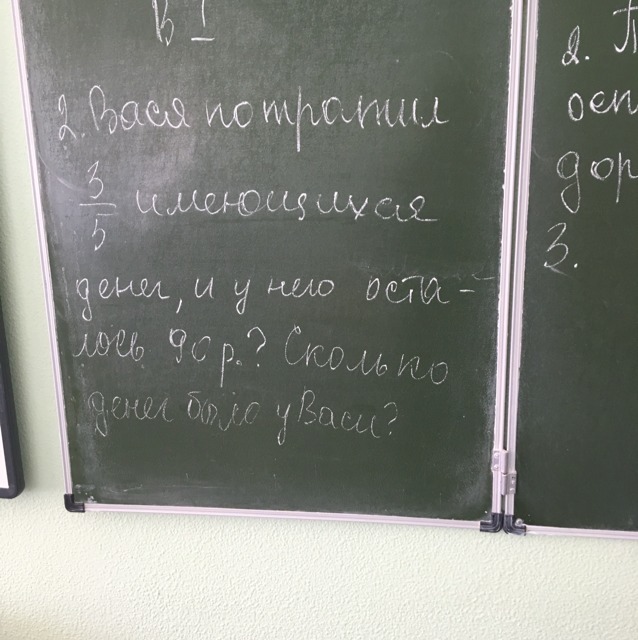 В I
2. Вася потратил
3/5 имеющихся
денег, и у него оста-
лось 90 р.? Сколько
денег было у Васи?
2. П
осп
дор
3.